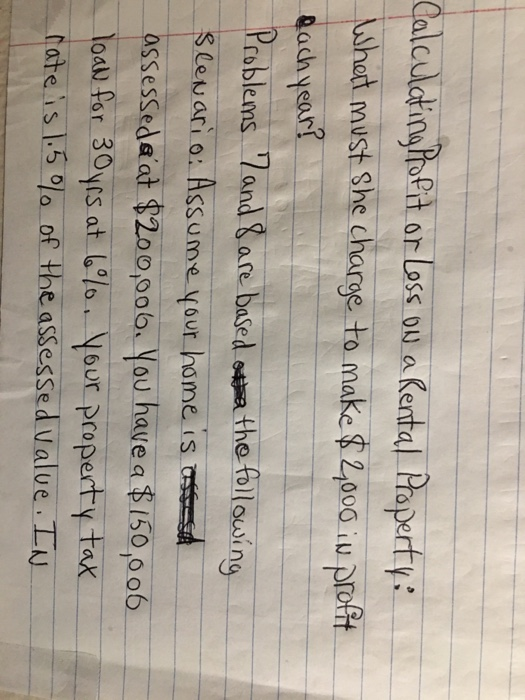 Calculating Profit or Loss on a Rental Property:
What must she charge to make $2,000 in profit
each year?
Problems 7 and 8 are based the following
Scenario: Assume your home is
assessed at $200,000. You have a $150,000
loan for 30yrs at 6%. Your property tax
rate is 1.5% of the assessed value. IN